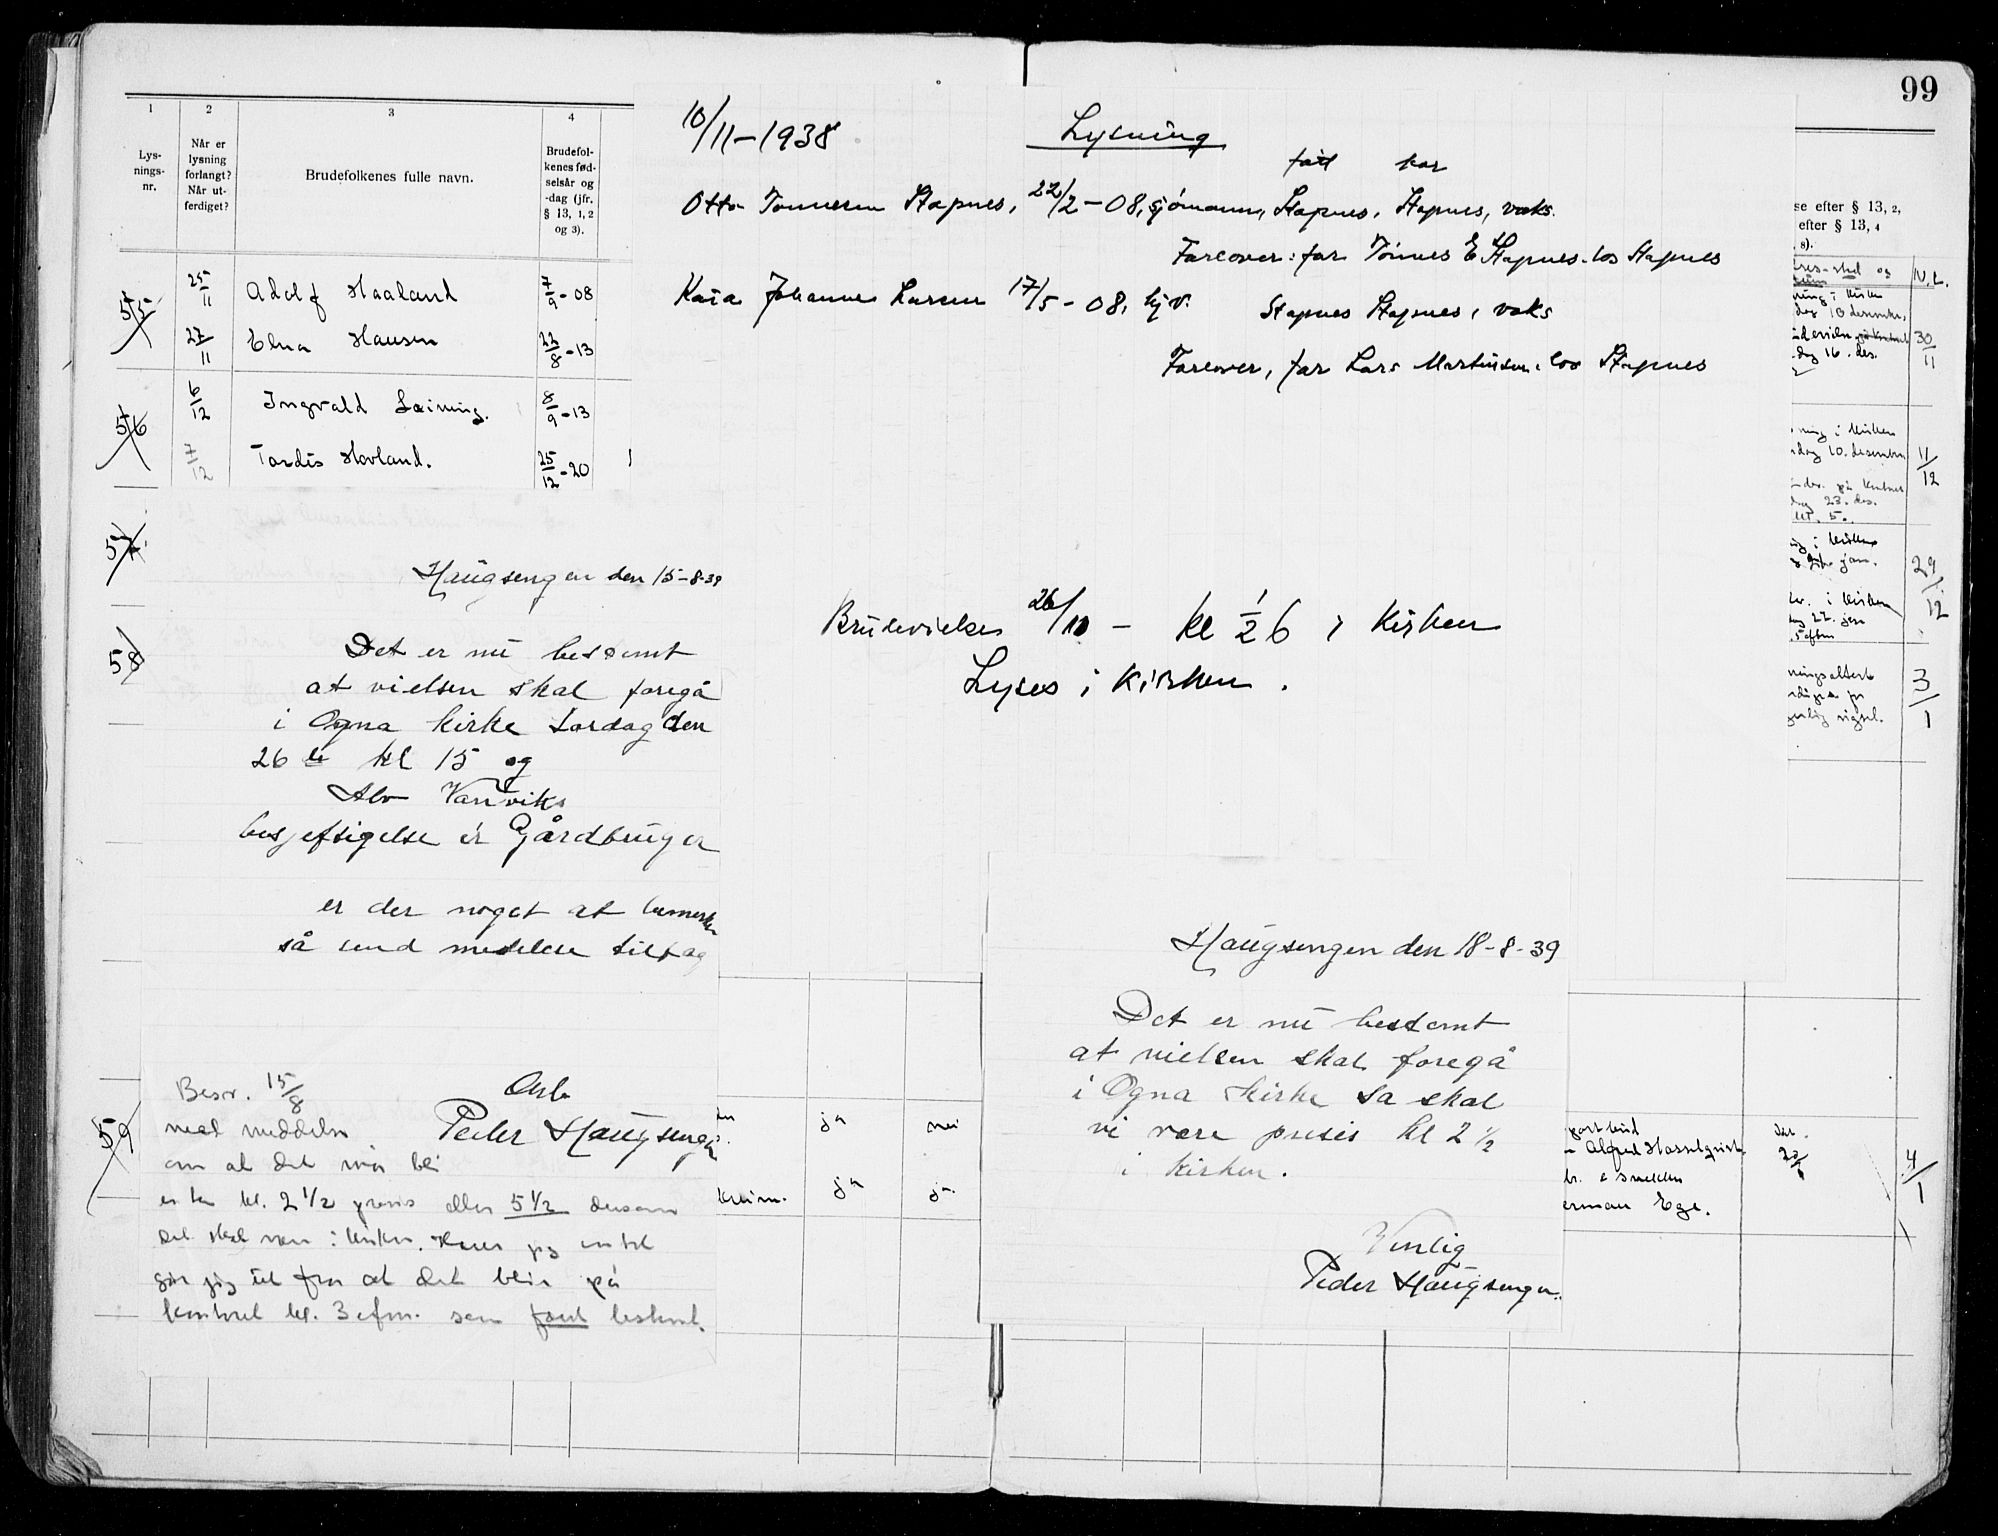 99
1
2
3
4
Lys-
nings-
nr.
Når er
lysning
forlangt?
Når ut-
ferdiget?
Brudefolkenes fulle navn.
Brudefol-
kenes fød-
selsår og
-dag (jfr.
§ 13, 1, 2
og 3).
55
25/11 Adolf Haaland 7/9-08
27/11 Elna Hansen 22/8-13
56
6/12 Ingvald Leining. 8/9-13
7/12 Tordis Hovland. 25/12-20
57
58
59
10/11-1938
Lysning
født har
Otto Tonnesen Stapnes, 22/2-08, sjömann, Stapnes, Stapnes, vaks.
Forlover: far Tönnes E Stapnes. los Stapnes
Kaia Johanne Larsen 17/5-08, hjv. Stapnes Stapnes, vaks
Forlover, far Lars Martinsen. los Stapnes
Brudevielse 26/11 - kl 1/2 6 i Kirken
Lyses i Kirken.
Haugsengen den 15-8-39
Det er nu bestemt
at vielsen skal foregå
i Ogna kirke Lørdag den
26 de kl 15 og
Vanviks
besjeftigelse er Gårdbruger
er der noget at bemerke
så send medelelse
Peder Haugsengen
Besv. 15/8
med meddelse
om at det må bli
kl. 2 1/2 presis eller 5 1/2 dersom
det skal være i kirken. Hører jeg intet
går jeg ut fra at det blir på
kontoret kl. 3 efm. som først bestemt.
Haugsengen den 18-8-39
Det er nu bestemt
at vielsen skal foregå
i Ogna Kirke Sa skal
vi være presis kl 2 1/2
i Kirken.
Venlig
Peder Haugsengen.
se efter § 13, 2,
efter § 13, 4
8).
N.L.
10 desember,
dag 16. des.
30/11
ning i kirken
dag 10. desember
på kontoret
dag 23. des.
kl. 5.
11/12
i kirken
jan.
i kirken
5 eftm
29/12
ningsattest
3/1
ja nei
ja ja
Alfred Hasselqvist
Ege.
4/1